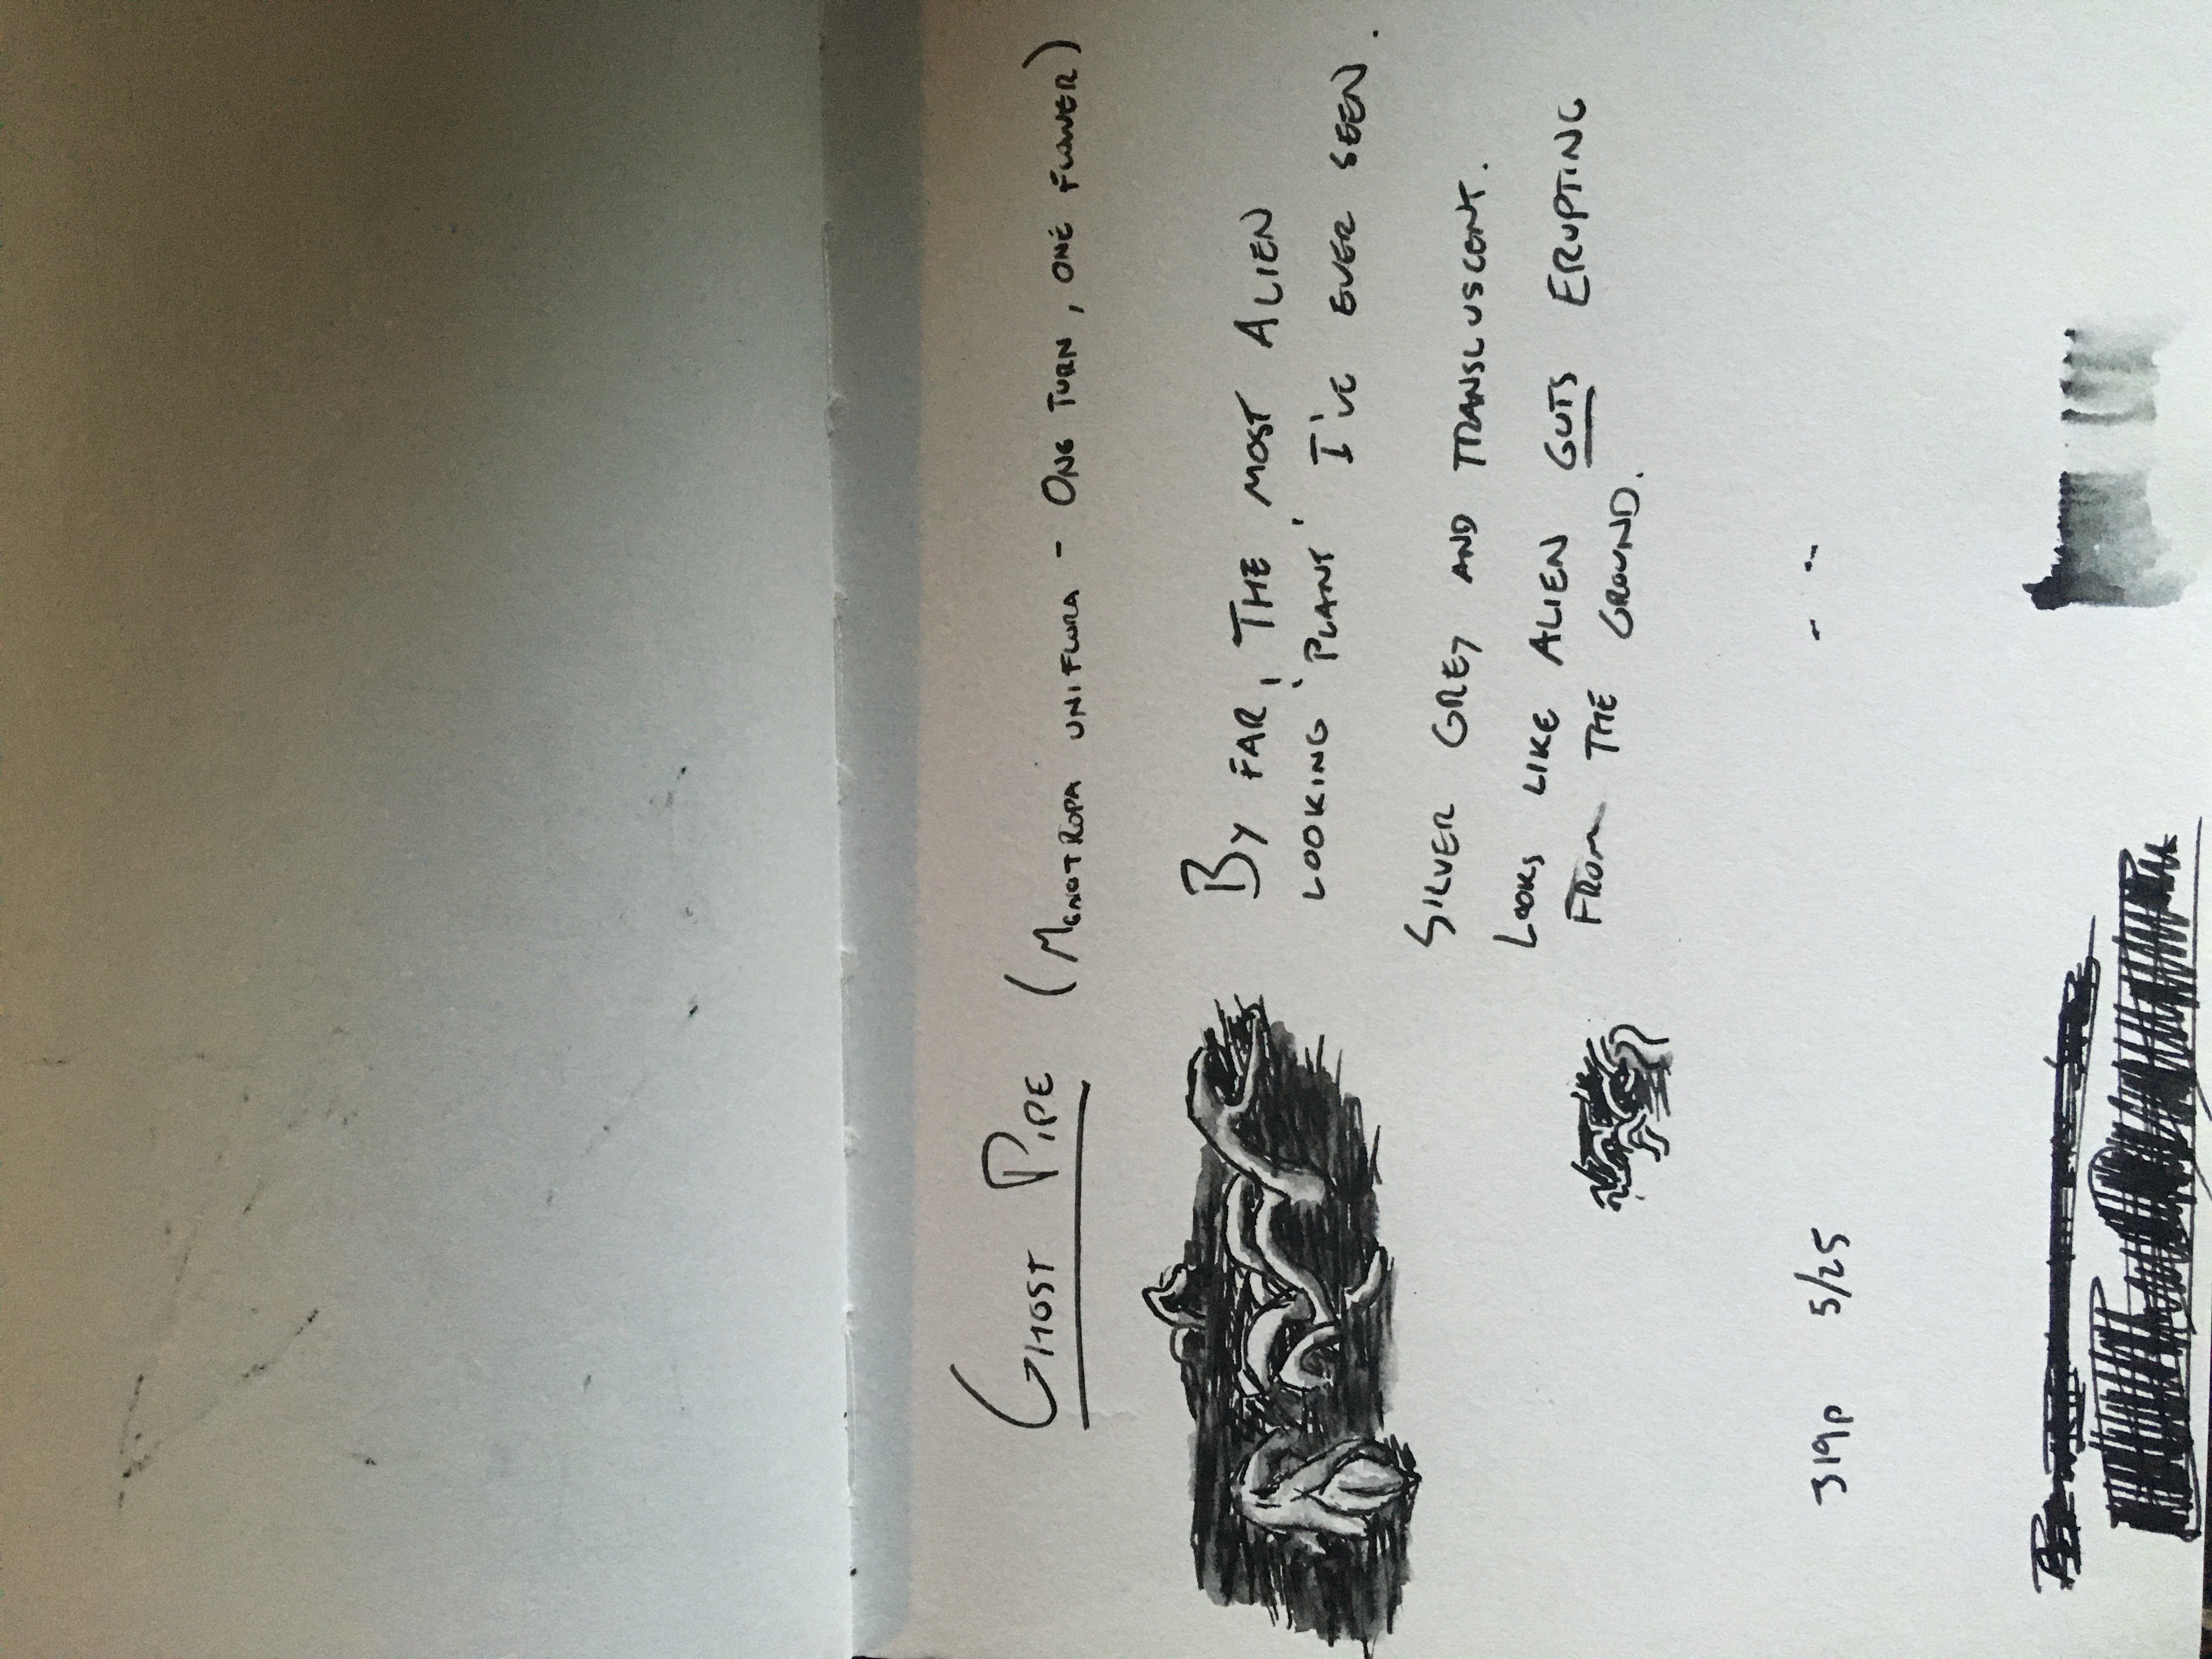 GHOST PIPE (MONOTROPA UNIFLORA - ONE TURN, ONE FLOWER)
BY FAR, THE MOST ALIEN
LOOKING 'PLANT' I'VE EVER SEEN.
SILVER GREY AND TRANSLUSCENT.
LOOKS LIKE ALIEN GUTS ERUPTING
FROM THE GROUND.
319p 5/25